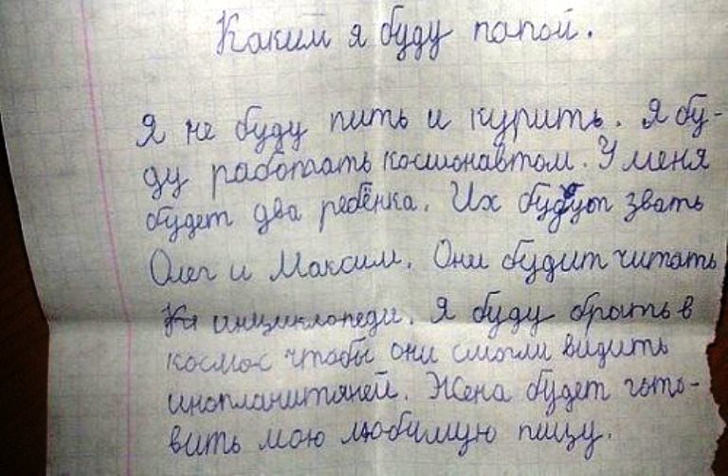 Каким я буду папой.
Я не буду пить и курить. Я бу-
ду работать космонавтом. У меня
будет два ребёнка. Их будут звать
Олег и Максим. Они будит читать
инциклопеди. Я буду брать в
космос чтобы они смогли видить
инопланитяней. Жена будет гото-
вить мою любимую пицу.